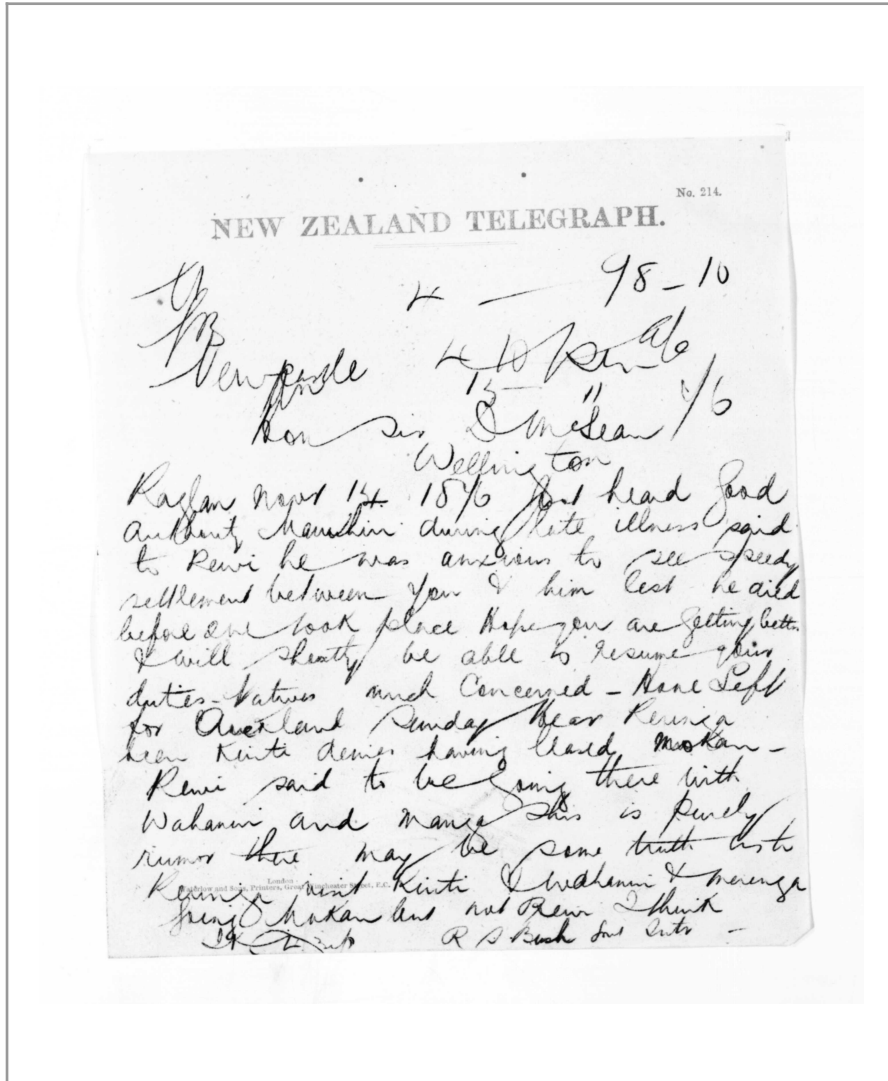 No. 214.
NEW ZEALAND TELEGRAPH.
4 — 98-10
Newcastle 4 10
15 " 4/6
Hon Sir D McLean
Wellington
Raglan Novr 14 1876 Just heard good
authority Manuhiri during late illness said
to Rewi he was anxious to see speedy
settlement between you & him lest he died
before one took place Hope you are getting better
& will shortly be able to resume your
duties - Natives much Concerned - Hone Left
for Auckland Sunday Hear Rerenga
been Kuiti denies having leased Mokau -
Rewi said to be going there with
Wahanui and Manga this is purely
rumor there may be some truth as to
London
Waterlow and Sons, Printers, Great Winchester Street, E.C.
Rerenga visit Kuiti & Wahanui &
going Mokau but not Rewi I think
R S Bush